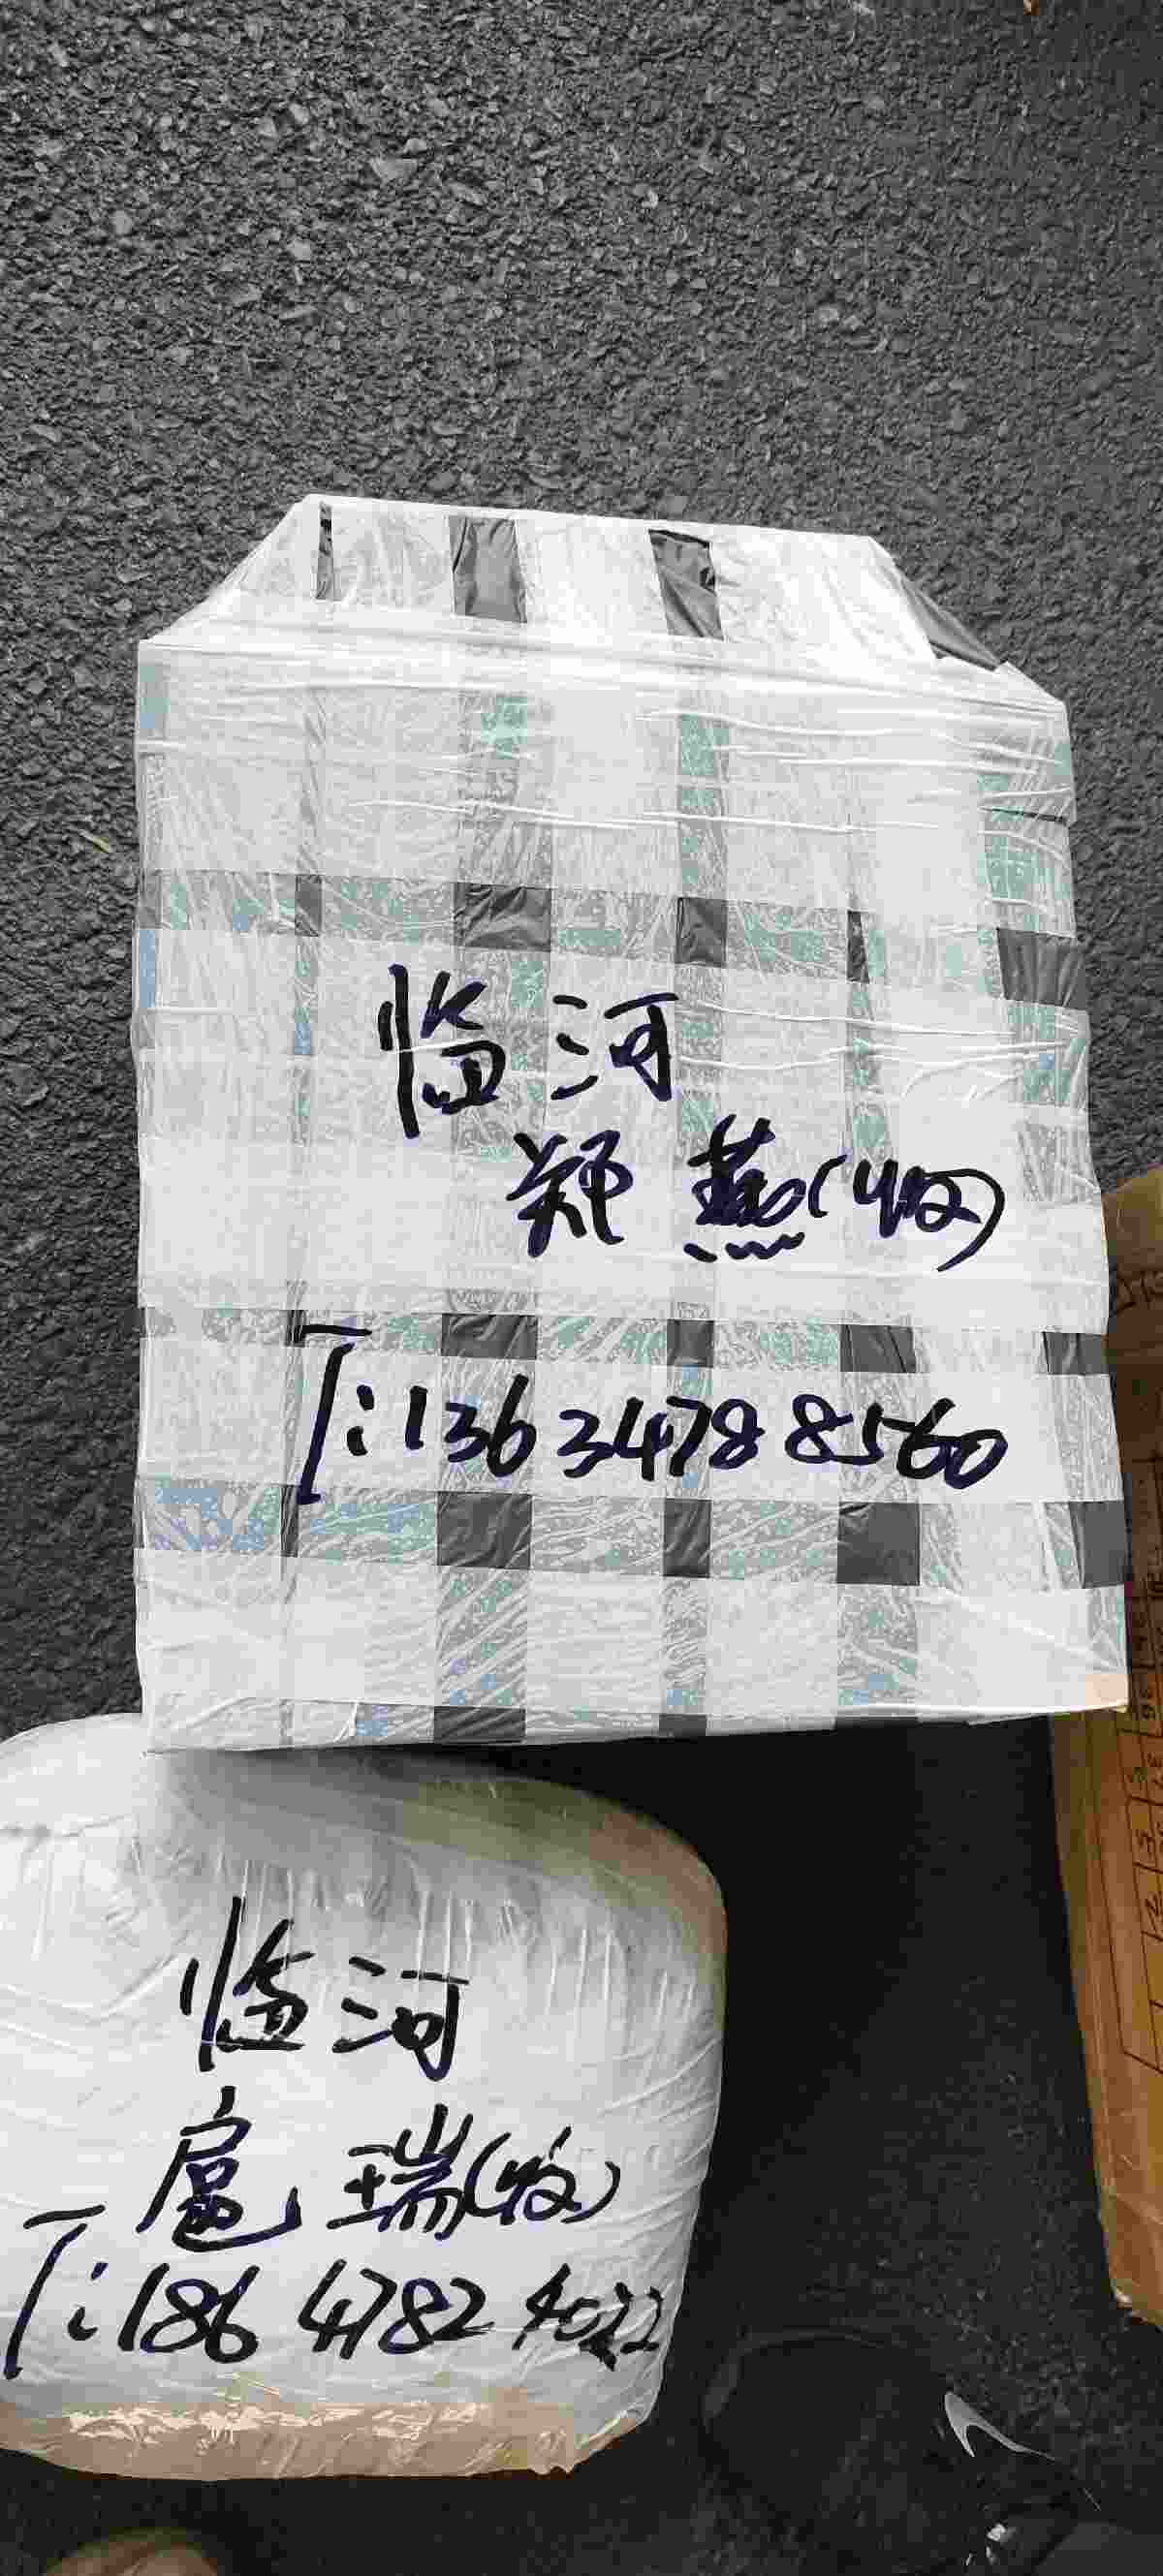 临河
郑燕(收)
T:136 3478 8560
临河
扈瑞(收)
T:186 4782 4022